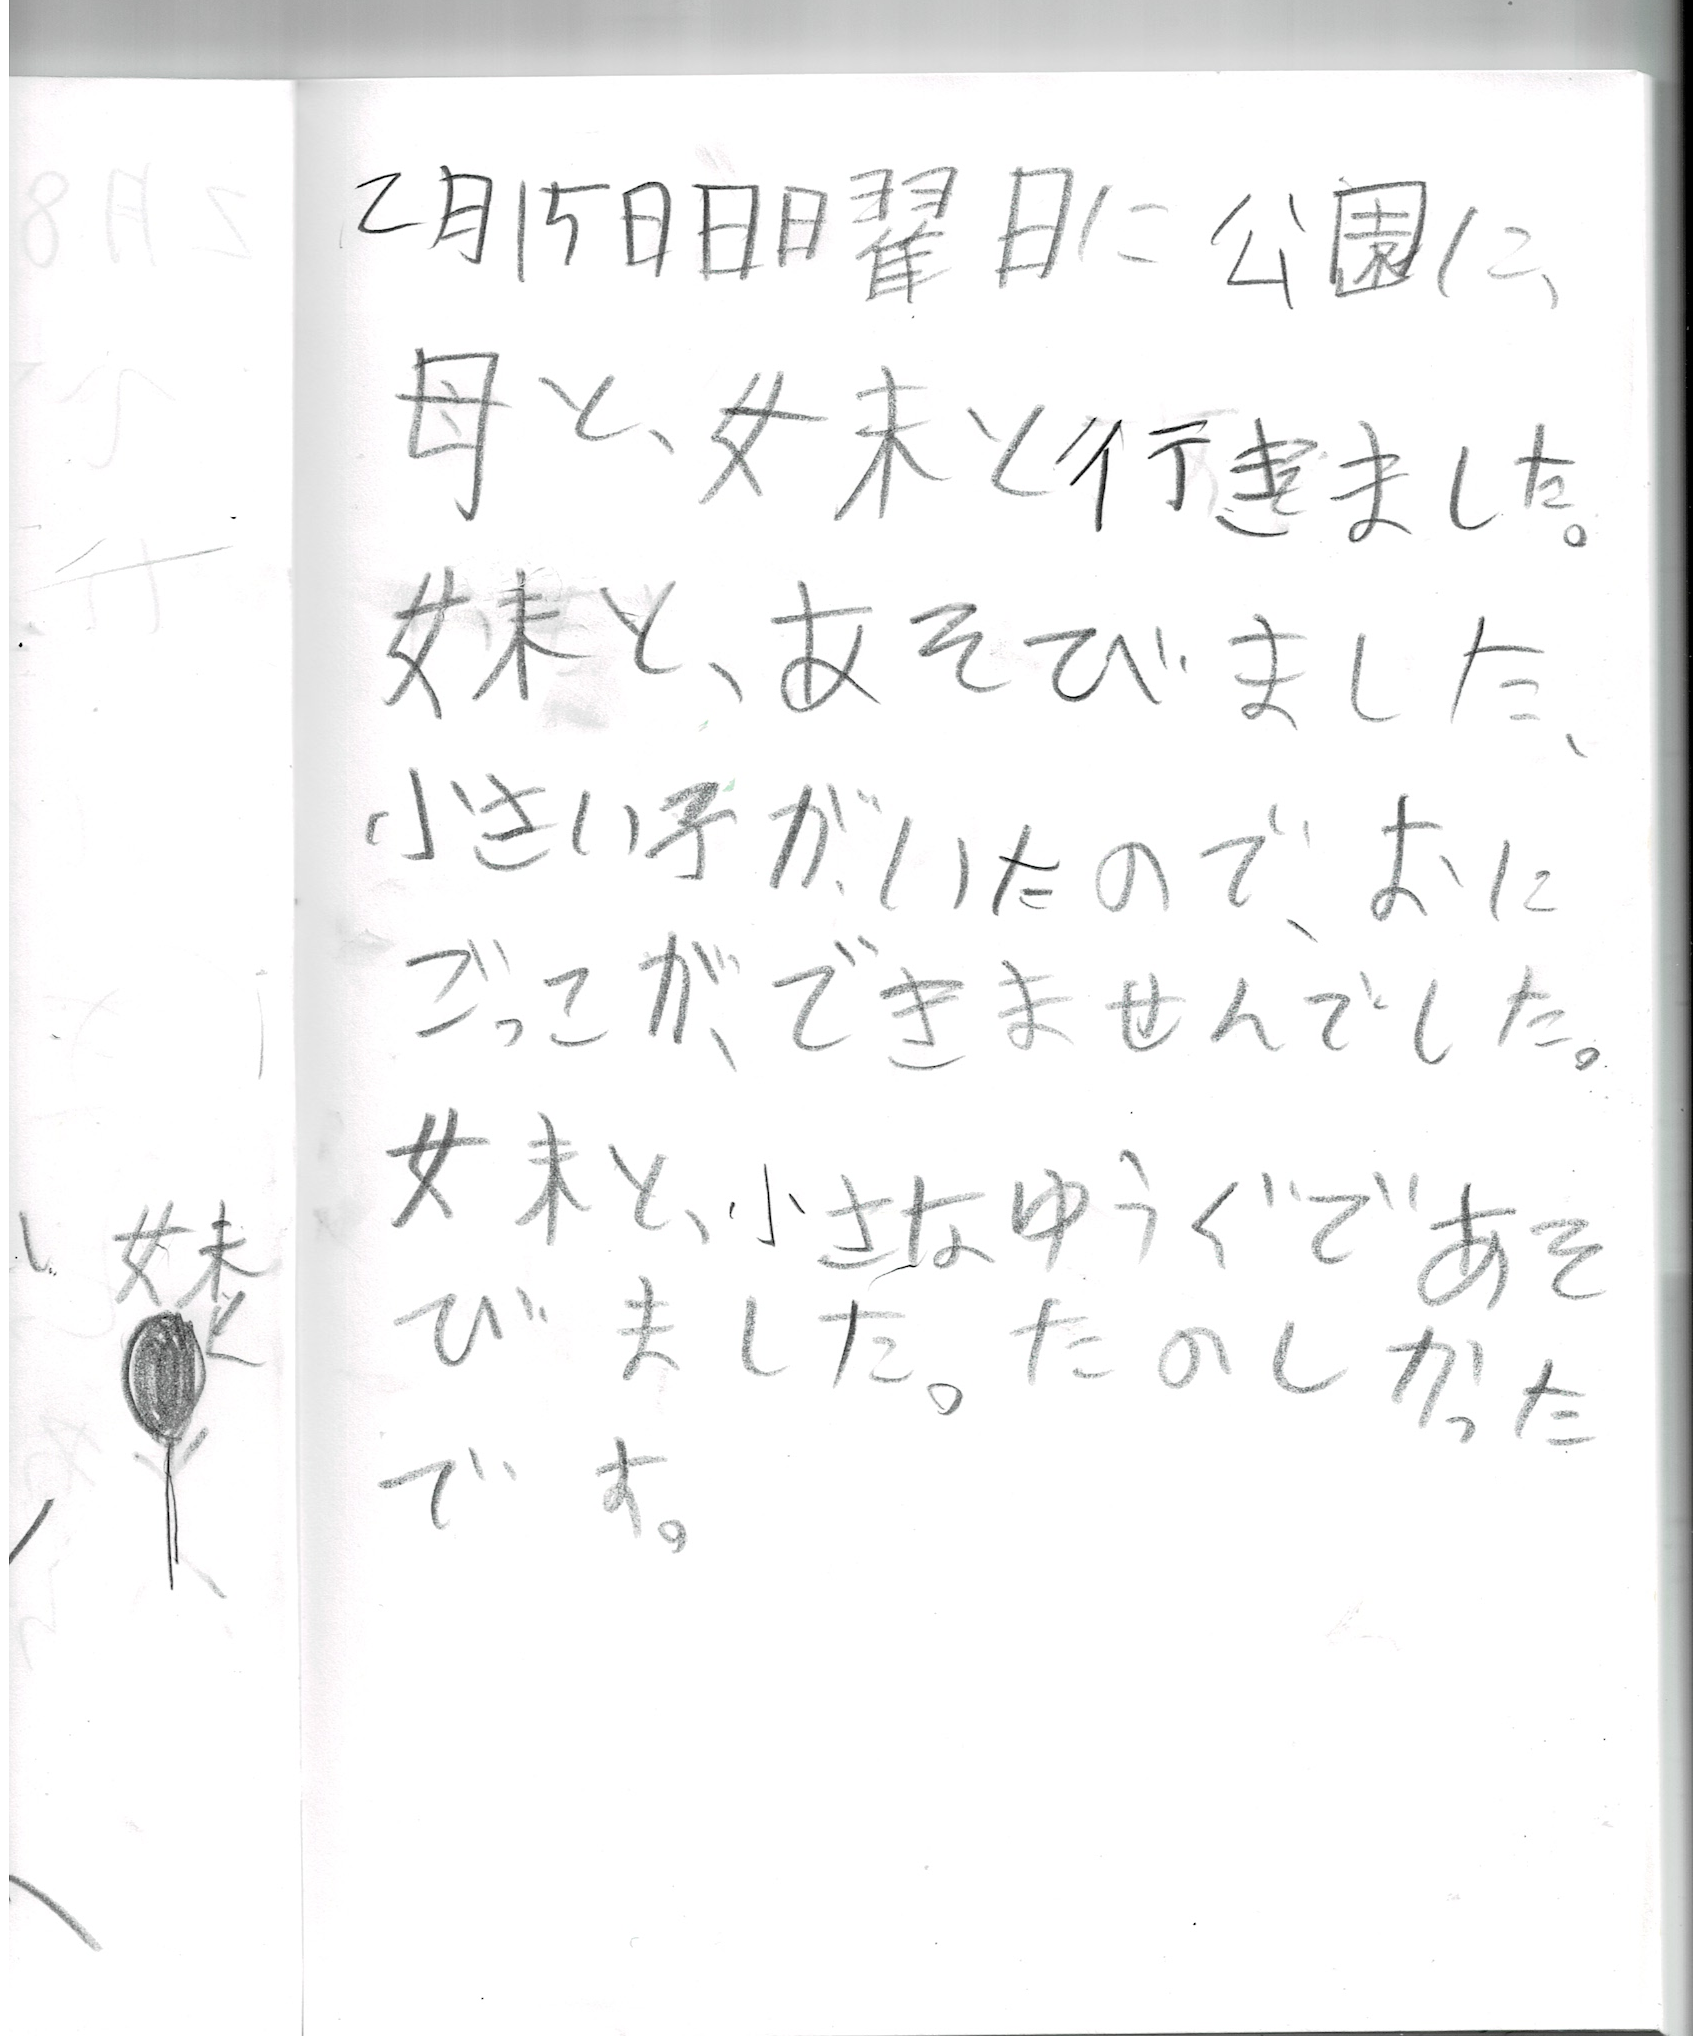 2月15日日曜日に公園に、
母と、妹と行きました。
妹と、あそびました、
小さい子がいたので、おに
ごっこが、できませんでした。
妹と、小さなゆうぐであそ
びました。たのしかった
です。
妹